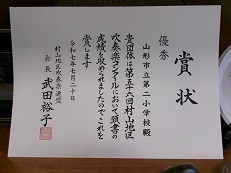 優秀
賞状
山形市立第二小学校殿
貴団体は第五十六回村山地区
吹奏楽コンクールにおいて頭書の
成績を収められましたのでこれを
賞します
令和七年七月二十日
村山地区吹奏楽連盟
会長 武田裕子